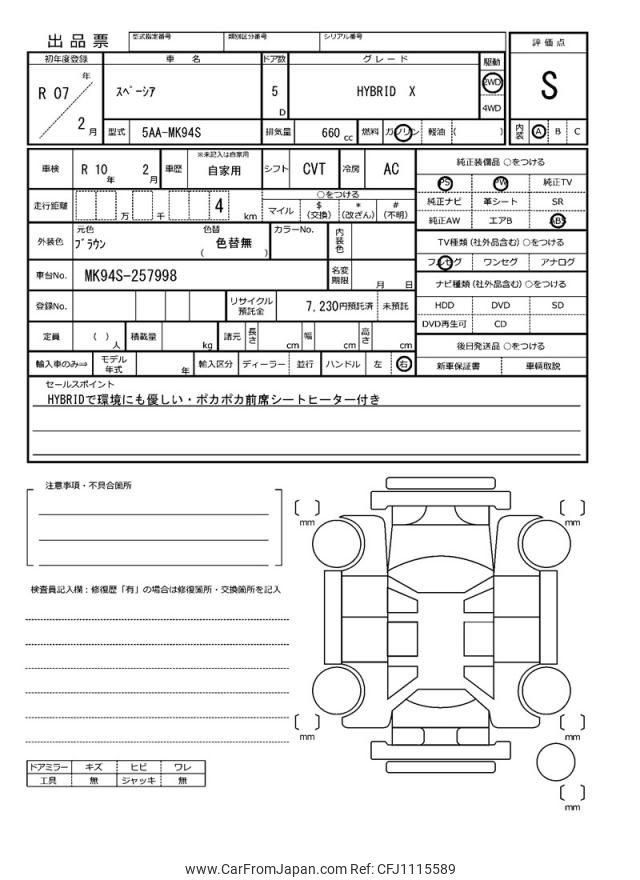 出品票
型式指定番号
類別区分番号
シリアル番号
初年度登録
車 名
ドア数
グレード
駆動
評価点
R 07 年
2 月
スペーシア
5 D
HYBRID X
2WD
4WD
S
型式
5AA-MK94S
排気量
660 cc
燃料
ガソリン
軽油 ( )
内装
A B C
車検
R 10 年 2 月
車歴
※未記入は自家用
自家用
シフト
CVT
冷房
AC
純正装備品 ○をつける
PS PW 純正TV
純正ナビ 革シート SR
純正AW エアB ABS
走行距離
万 千 4 km
○をつける
マイル
$ (交換)
* (改ざん)
# (不明)
外装色
元色
ブラウン
色替
( 色替無 )
カラーNo.
内装色
TV種類 (社外品含む) ○をつける
フルセグ ワンセグ アナログ
車台No.
MK94S-257998
名変期限
月 日
ナビ種類 (社外品含む) ○をつける
HDD DVD SD
DVD再生可 CD
登録No.
リサイクル預託金
7,230円預託済
未預託
定員
( ) 人
積載量
kg
諸元
長さ cm
幅 cm
高さ cm
後日発送品 ○をつける
新車保証書 車輌取説
輸入車のみ⇒
モデル年式
年
輸入区分
ディーラー
並行
ハンドル
左 右
セールスポイント
HYBRIDで環境にも優しい・ポカポカ前席シートヒーター付き
注意事項・不具合箇所
検査員記入欄:修復歴「有」の場合は修復箇所・交換箇所を記入
[ ] mm
[ ] mm
[ ] mm
[ ] mm
[ ] mm
ドアミラー キズ ヒビ ワレ
工具 無 ジャッキ 無
www.CarFromJapan.com Ref: CFJ1115589